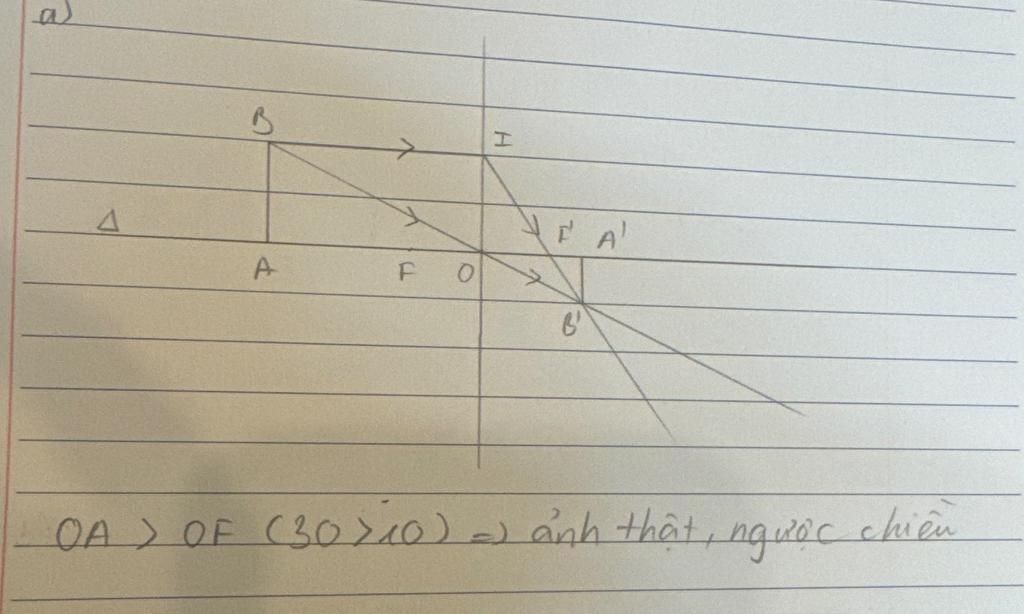 a)
B
I
Δ
F' A'
A F O
B'
OA > OF (30 > 10) => ảnh thật, ngược chiều